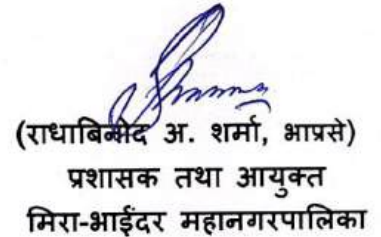 (राधाबिनोद अ. शर्मा, भाप्रसे)
प्रशासक तथा आयुक्त
मिरा-भाईंदर महानगरपालिका